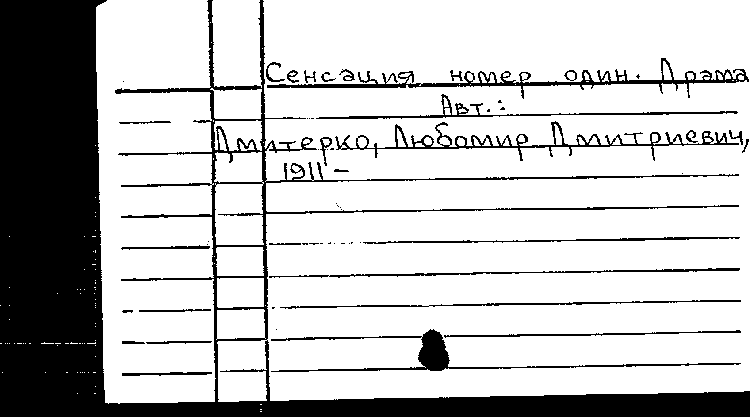 Сенсация номер один. Драма
Авт.:
Дмитерко, Любомир Дмитриевич,
1911 –